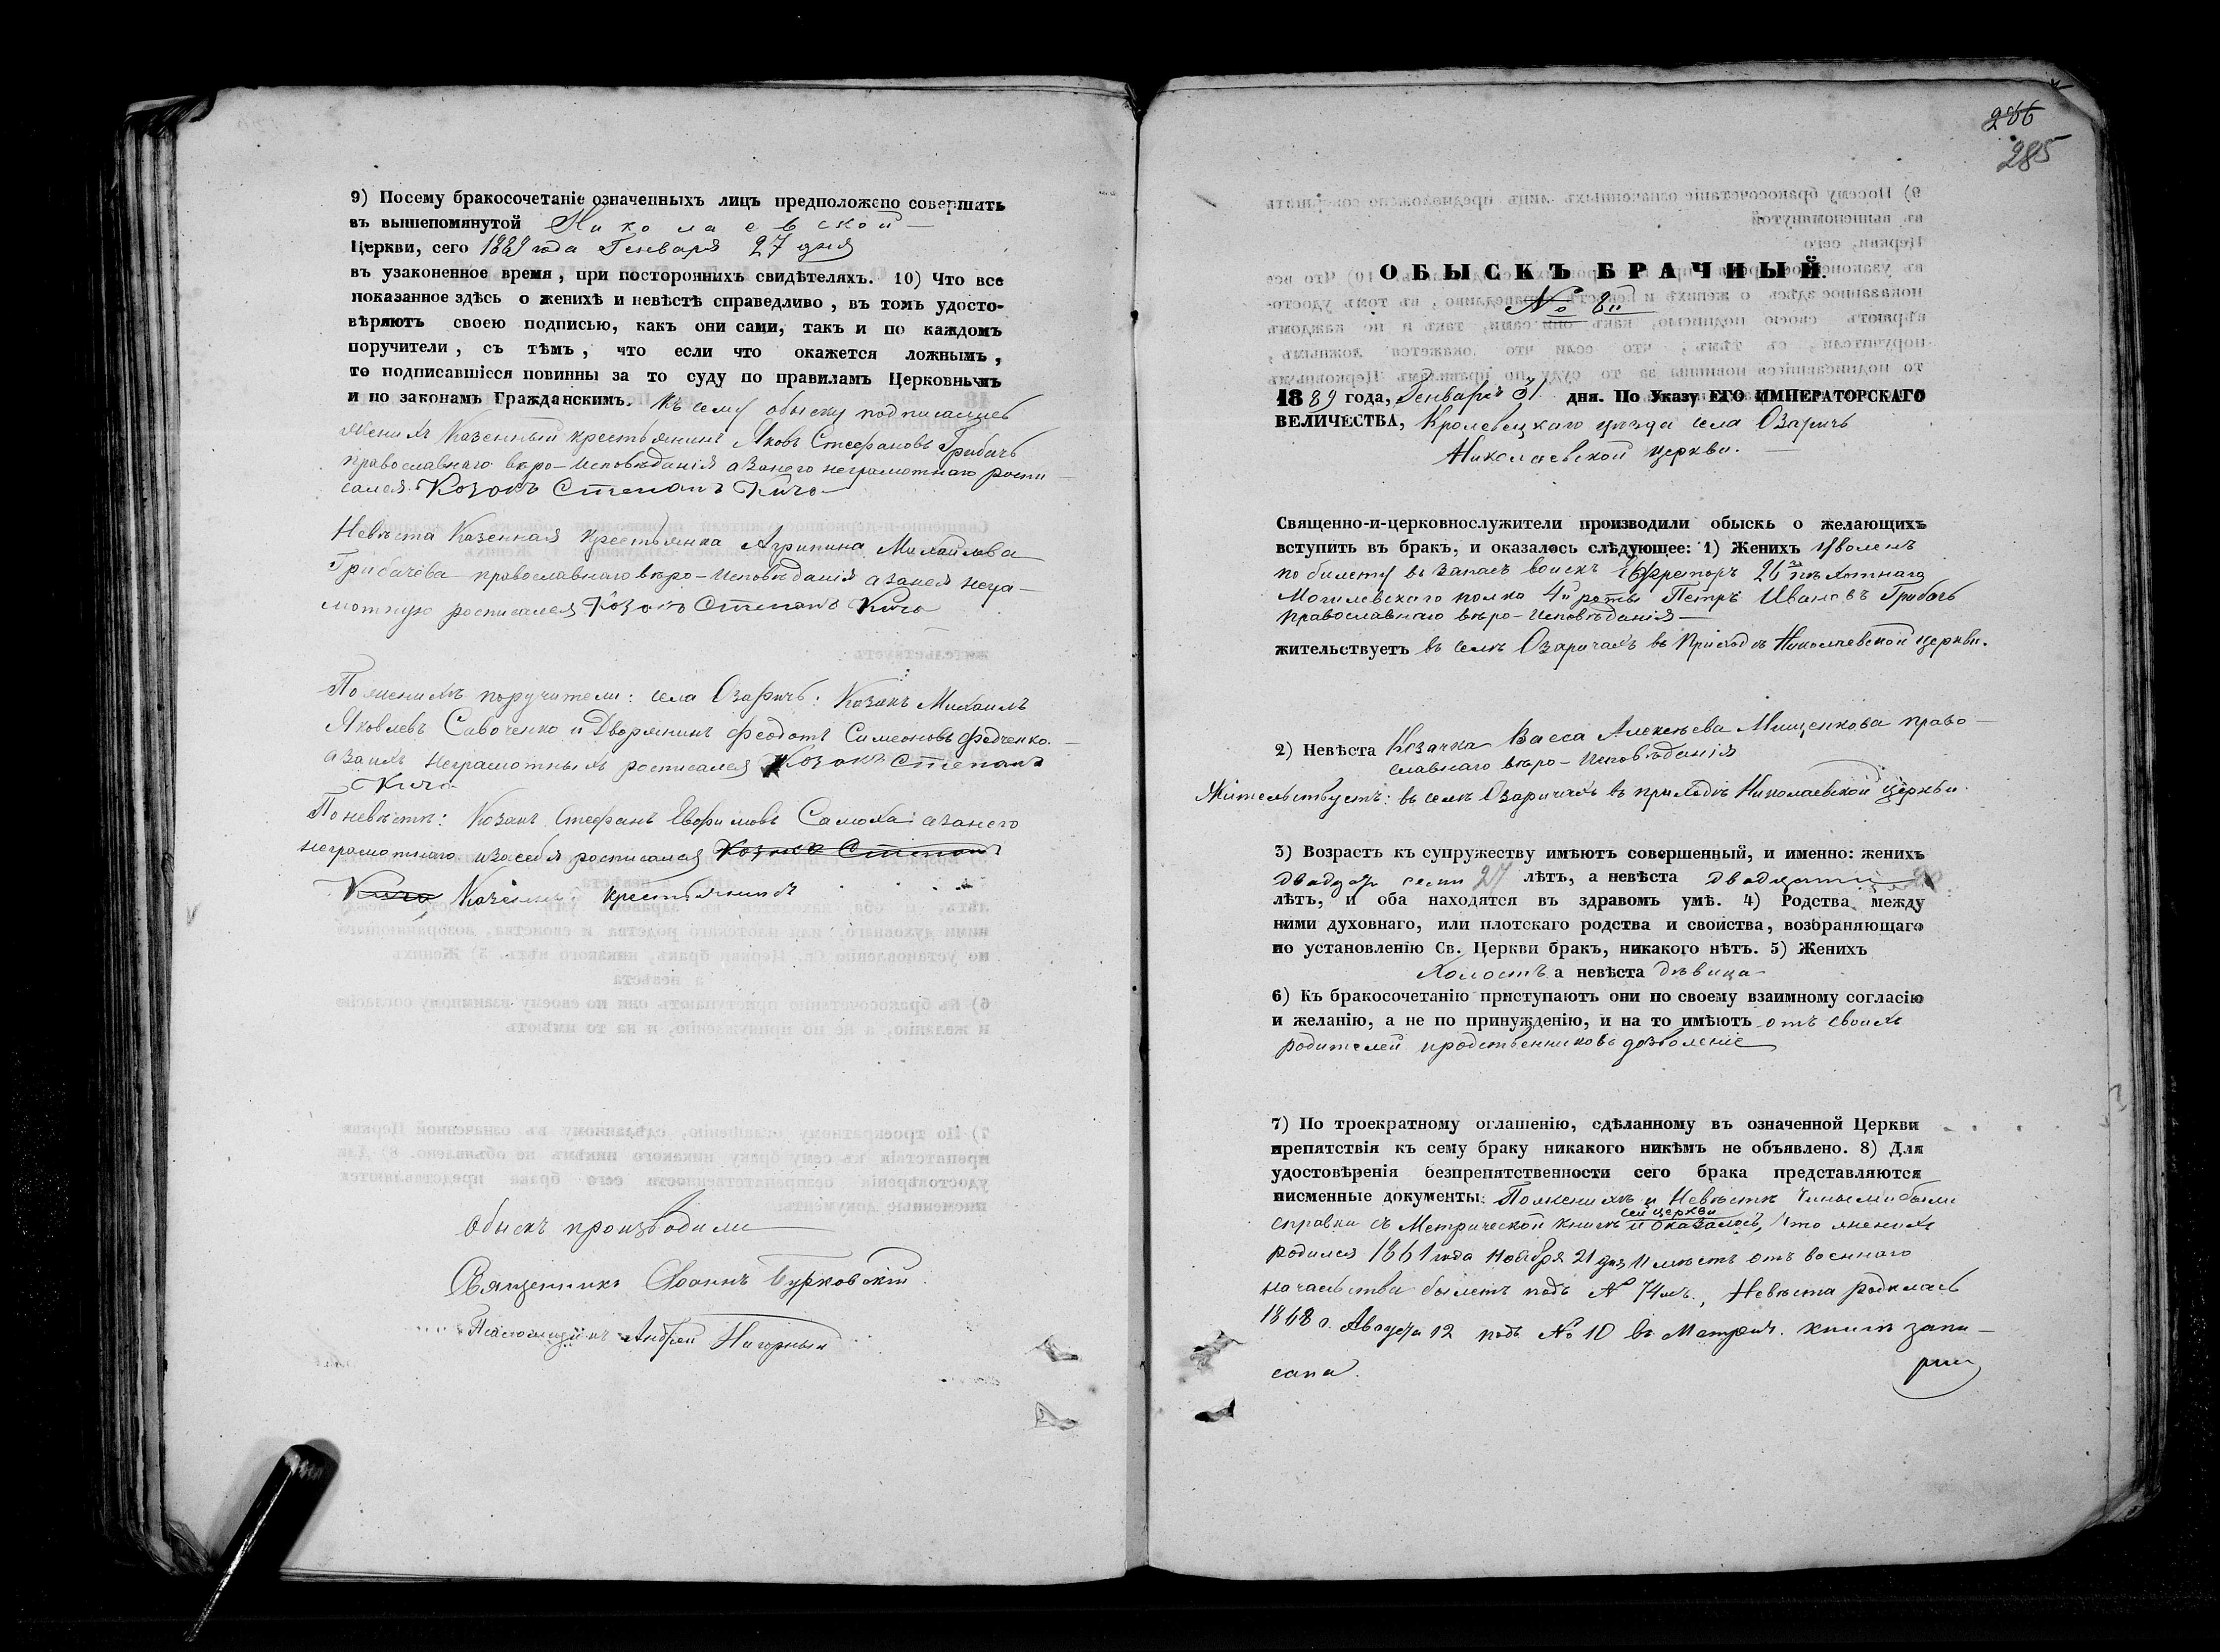 9) Посему бракосочетаніе означенныхъ лицъ предположено совершить
въ вышепомянутой Николаевской
Церкви, сего 1889 года Генваря 27 дня
въ узаконенное время, при постороннихъ свидѣтеляхъ. 10) Что все
показанное здѣсь о женихѣ и невѣстѣ справедливо, въ томъ удосто-
вѣряютъ своею подписью, какъ они сами, такъ и по каждомъ
поручители, съ тѣмъ, что если что окажется ложнымъ,
то подписавшіеся повинны за то суду по правиламъ Церковнымъ
и по законамъ Гражданскимъ. Къ сему обыску подписались
женихъ Казенный крестьянинъ Яковъ Стефановъ Грибачъ
православнаго вѣро-исповѣданія а за него неграмотнаго роспи-
сался Козакъ Степанъ Кичо
Невѣста Казенная крестьянка Агрипина Михайлова
Грибачева православнаго вѣро-исповѣданія а за нея негра-
мотную росписался Козакъ Степанъ Кичо
По женихѣ поручители: села Озаричъ: Козакъ Михаилъ
Яковлевъ Савоченко и Дворянинъ Феодотъ Симеоновъ Федченко
а за ихъ неграмотныхъ росписался Козакъ Степанъ
Кичо
По невѣстѣ: Козакъ Стефанъ Евфимовъ Самоха: а за него
неграмотнаго и за себя росписался Козакъ Степанъ
Кичо крестьянинъ
Обыскъ производили
Священникъ Іоаннъ Бурковскій
Псаломщикъ Андрей Нагорный
266
285
ОБЫСКЪ БРАЧНЫЙ.
№ 8й
1889 года, Генварь 31 дня. По Указу ЕГО ИМПЕРАТОРСКАГО
ВЕЛИЧЕСТВА, Кролевецкаго уѣзда села Озаричъ
Николаевской церкви.
Священно-и-церковнослужители производили обыскъ о желающихъ
вступить въ бракъ, и оказалось слѣдующее: 1) Женихъ Уволенъ
по билету въ запасъ воискъ Ефрейторъ 26го пѣхотнаго
Могилевскаго полка 4й роты Петръ Ивановъ Грибачъ
православнаго вѣро-исповѣданія
жительствуетъ въ селѣ Озаричахъ въ приходѣ Николаевской церкви.
2) Невѣста Козачка Васса Алексѣева Мищенкова право-
славнаго вѣро-исповѣданія
Жительствуетъ: въ селѣ Озаричахъ въ приходѣ Николаевской церкви.
3) Возрастъ къ супружеству имѣютъ совершенный, и именно: женихъ
двадцат семи 27 лѣтъ, а невѣста двадцати 20
лѣтъ, и оба находятся въ здравомъ умѣ. 4) Родства между
ними духовнаго, или плотскаго родства и свойства, возбраняющаго
по установленію Св. Церкви бракъ, никакого нѣтъ. 5) Женихъ
Холостъ а невѣста дѣвица
6) Къ бракосочетанію приступаютъ они по своему взаимному согласію
и желанію, а не по принужденію, и на то имѣютъ отъ своихъ
родителей и родственниковъ дозволеніе
7) По троекратному оглашенію, сдѣланному въ означенной Церкви
препятствія къ сему браку никакого никѣмъ не объявлено. 8) Для
удостовѣренія безпрепятственности сего брака представляются
писменные документы: По женихѣ и Невѣстѣ были
справки съ Метрической книгѣ сей церкви и оказалось, что женихъ
родился 1861 года Ноября 21 дня имѣетъ отъ военнаго
начальства билетъ подъ № 74мъ., Невѣста родилась
1868 г. Августа 12 подъ № 10 въ Метрич. книгѣ запи-
сана.